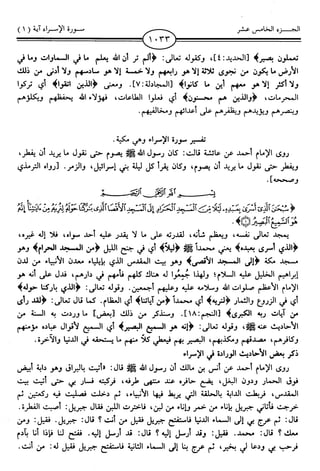 الجـزء الخامس عشر
١٠٣٣
سورة الإسراء آية (١)
تعملون بصير﴾ [الحديد: ٤]، وكقوله تعالى: ﴿ألم تر أن الله يعلم ما في السماوات وما في
الأرض ما يكون من نجوى ثلاثة إلا هو رابعهم ولا خمسة إلا هو سادسهم ولا أدنى من ذلك
ولا أكثر إلا هو معهم أين ما كانوا﴾ [المجادلة: ٧]. ومعنى ﴿الذين اتقوا﴾ أي تركوا
المحرمات، ﴿والذين هم محسنون﴾ أي فعلوا الطاعات، فهؤلاء الله يحفظهم ويكلؤهم
وينصرهم ويؤيدهم ويظفرهم على أعدائهم ومخالفيهم.
تفسير سورة الإسراء وهي مكية.
روى الإمام أحمد عن عائشة قالت: كان رسول الله ﷺ يصوم حتى نقول ما يريد أن يفطر،
ويفطر حتى نقول ما يريد أن يصوم، وكان يقرأ كل ليلة بني إسرائيل، والزمر. [رواه الترمذي
وصححه].
بسم الله الرحمن الرحيم
﴿سُبْحَانَ الَّذِي أَسْرَى بِعَبْدِهِ لَيْلًا مِنَ الْمَسْجِدِ الْحَرَامِ إِلَى الْمَسْجِدِ الْأَقْصَى الَّذِي بَارَكْنَا حَوْلَهُ لِنُرِيَهُ مِنْ آيَاتِنَا إِنَّهُ
هُوَ السَّمِيعُ الْبَصِيرُ﴾
يمجد تعالى نفسه، ويعظم شأنه، لقدرته على ما لا يقدر عليه أحد سواه، فلا إله غيره،
﴿الذي أسرى بعبده﴾ يعني محمداً ﷺ ﴿ليلاً﴾ أي في جنح الليل ﴿من المسجد الحرام﴾ وهو
مسجد مكة ﴿إلى المسجد الأقصى﴾ وهو بيت المقدس الذي بإيلياء معدن الأنبياء من لدن
إبراهيم الخليل عليه السلام؛ ولهذا جُمعوا له هناك كلهم فأمهم في دارهم، فدل على أنه هو
الإمام الأعظم صلوات الله وسلامه عليه وعليهم أجمعين. وقوله تعالى: ﴿الذي باركنا حوله﴾
أي في الزروع والثمار ﴿لنريه﴾ أي محمداً ﴿من آياتنا﴾ أي العظام. كما قال تعالى: ﴿لقد رأى
من آيات ربه الكبرى﴾ [النجم: ١٨]. وسنذكر من ذلك [بعض] ما وردت به السنة من
الأحاديث عنه ﷺ، وقوله تعالى: ﴿إنه هو السميع البصير﴾ أي السميع لأقوال عباده مؤمنهم
وكافرهم، مصدقهم ومكذبهم، البصير بهم فيعطي كلًا منهم ما يستحقه في الدنيا والآخرة.
ذكر بعض الأحاديث الواردة في الإسراء
روى الإمام أحمد عن أنس بن مالك أن رسول الله ﷺ قال: «أتيت بالبراق وهو دابة أبيض
فوق الحمار ودون البغل، يضع حافره عند منتهى طرفه، فركبته فسار بي حتى أتيت بيت
المقدس، فربطت الدابة بالحلقة التي يربط فيها الأنبياء، ثم دخلت فصليت فيه ركعتين ثم
خرجت فأتاني جبريل بإناء من خمر وإناء من لبن، فاخترت اللبن فقال جبريل: أصبت الفطرة.
قال: ثم عرج بي إلى السماء الدنيا فاستفتح جبريل فقيل من أنت؟ قال: جبريل. فقيل: ومن
معك؟ قال: محمد. فقيل: وقد أرسل إليه؟ قال: قد أرسل إليه. ففتح لنا فإذا أنا بآدم
فرحب بي ودعا لي بخير، ثم عرج بنا إلى السماء الثانية فاستفتح جبريل فقيل له: من أنت.